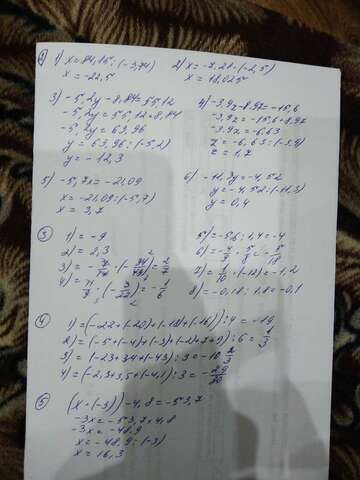 2) 1) x = 84,15 : (-3,74)
x = -22,5
2) x = -7,21 · (-2,5)
x = 18,025
3) -5,2y - 8,84 = 55,12
-5,2y = 55,12 + 8,84
-5,2y = 63,96
y = 63,96 : (-5,2)
y = -12,3
4) -3,9z - 8,97 = -15,6
-3,9z = -15,6 + 8,97
-3,9z = -6,63
z = -6,63 : (-3,9)
z = 1,7
5) -5,7x = -21,09
x = -21,09 : (-5,7)
x = 3,7
6) -11,3y = -4,52
y = -4,52 : (-11,3)
y = 0,4
3) 1) = -9
2) = 2,3
4) = -1/6
5) = -5,6 : 1,4 = -4
7) = 1/10 · (-12) = -1,2
8) = -0,18 : 1,8 = -0,1
4) 1) = (-22 + (-20) + (-18) + (-16)) : 4 = -19
2) = (-5 + (-4) + (-3) + (-2) + 7 + 9) : 6 = 1/3
3) = (-23 + 34 + (-43) : 3 = -10 2/3
4) = (-2,3 + 3,5 + (-4,1) : 3 = -29/30
5) (x · (-3)) - 4,8 = -53,7
-3x = -53,7 + 4,8
-3x = -48,9
x = -48,9 : (-3)
x = 16,3